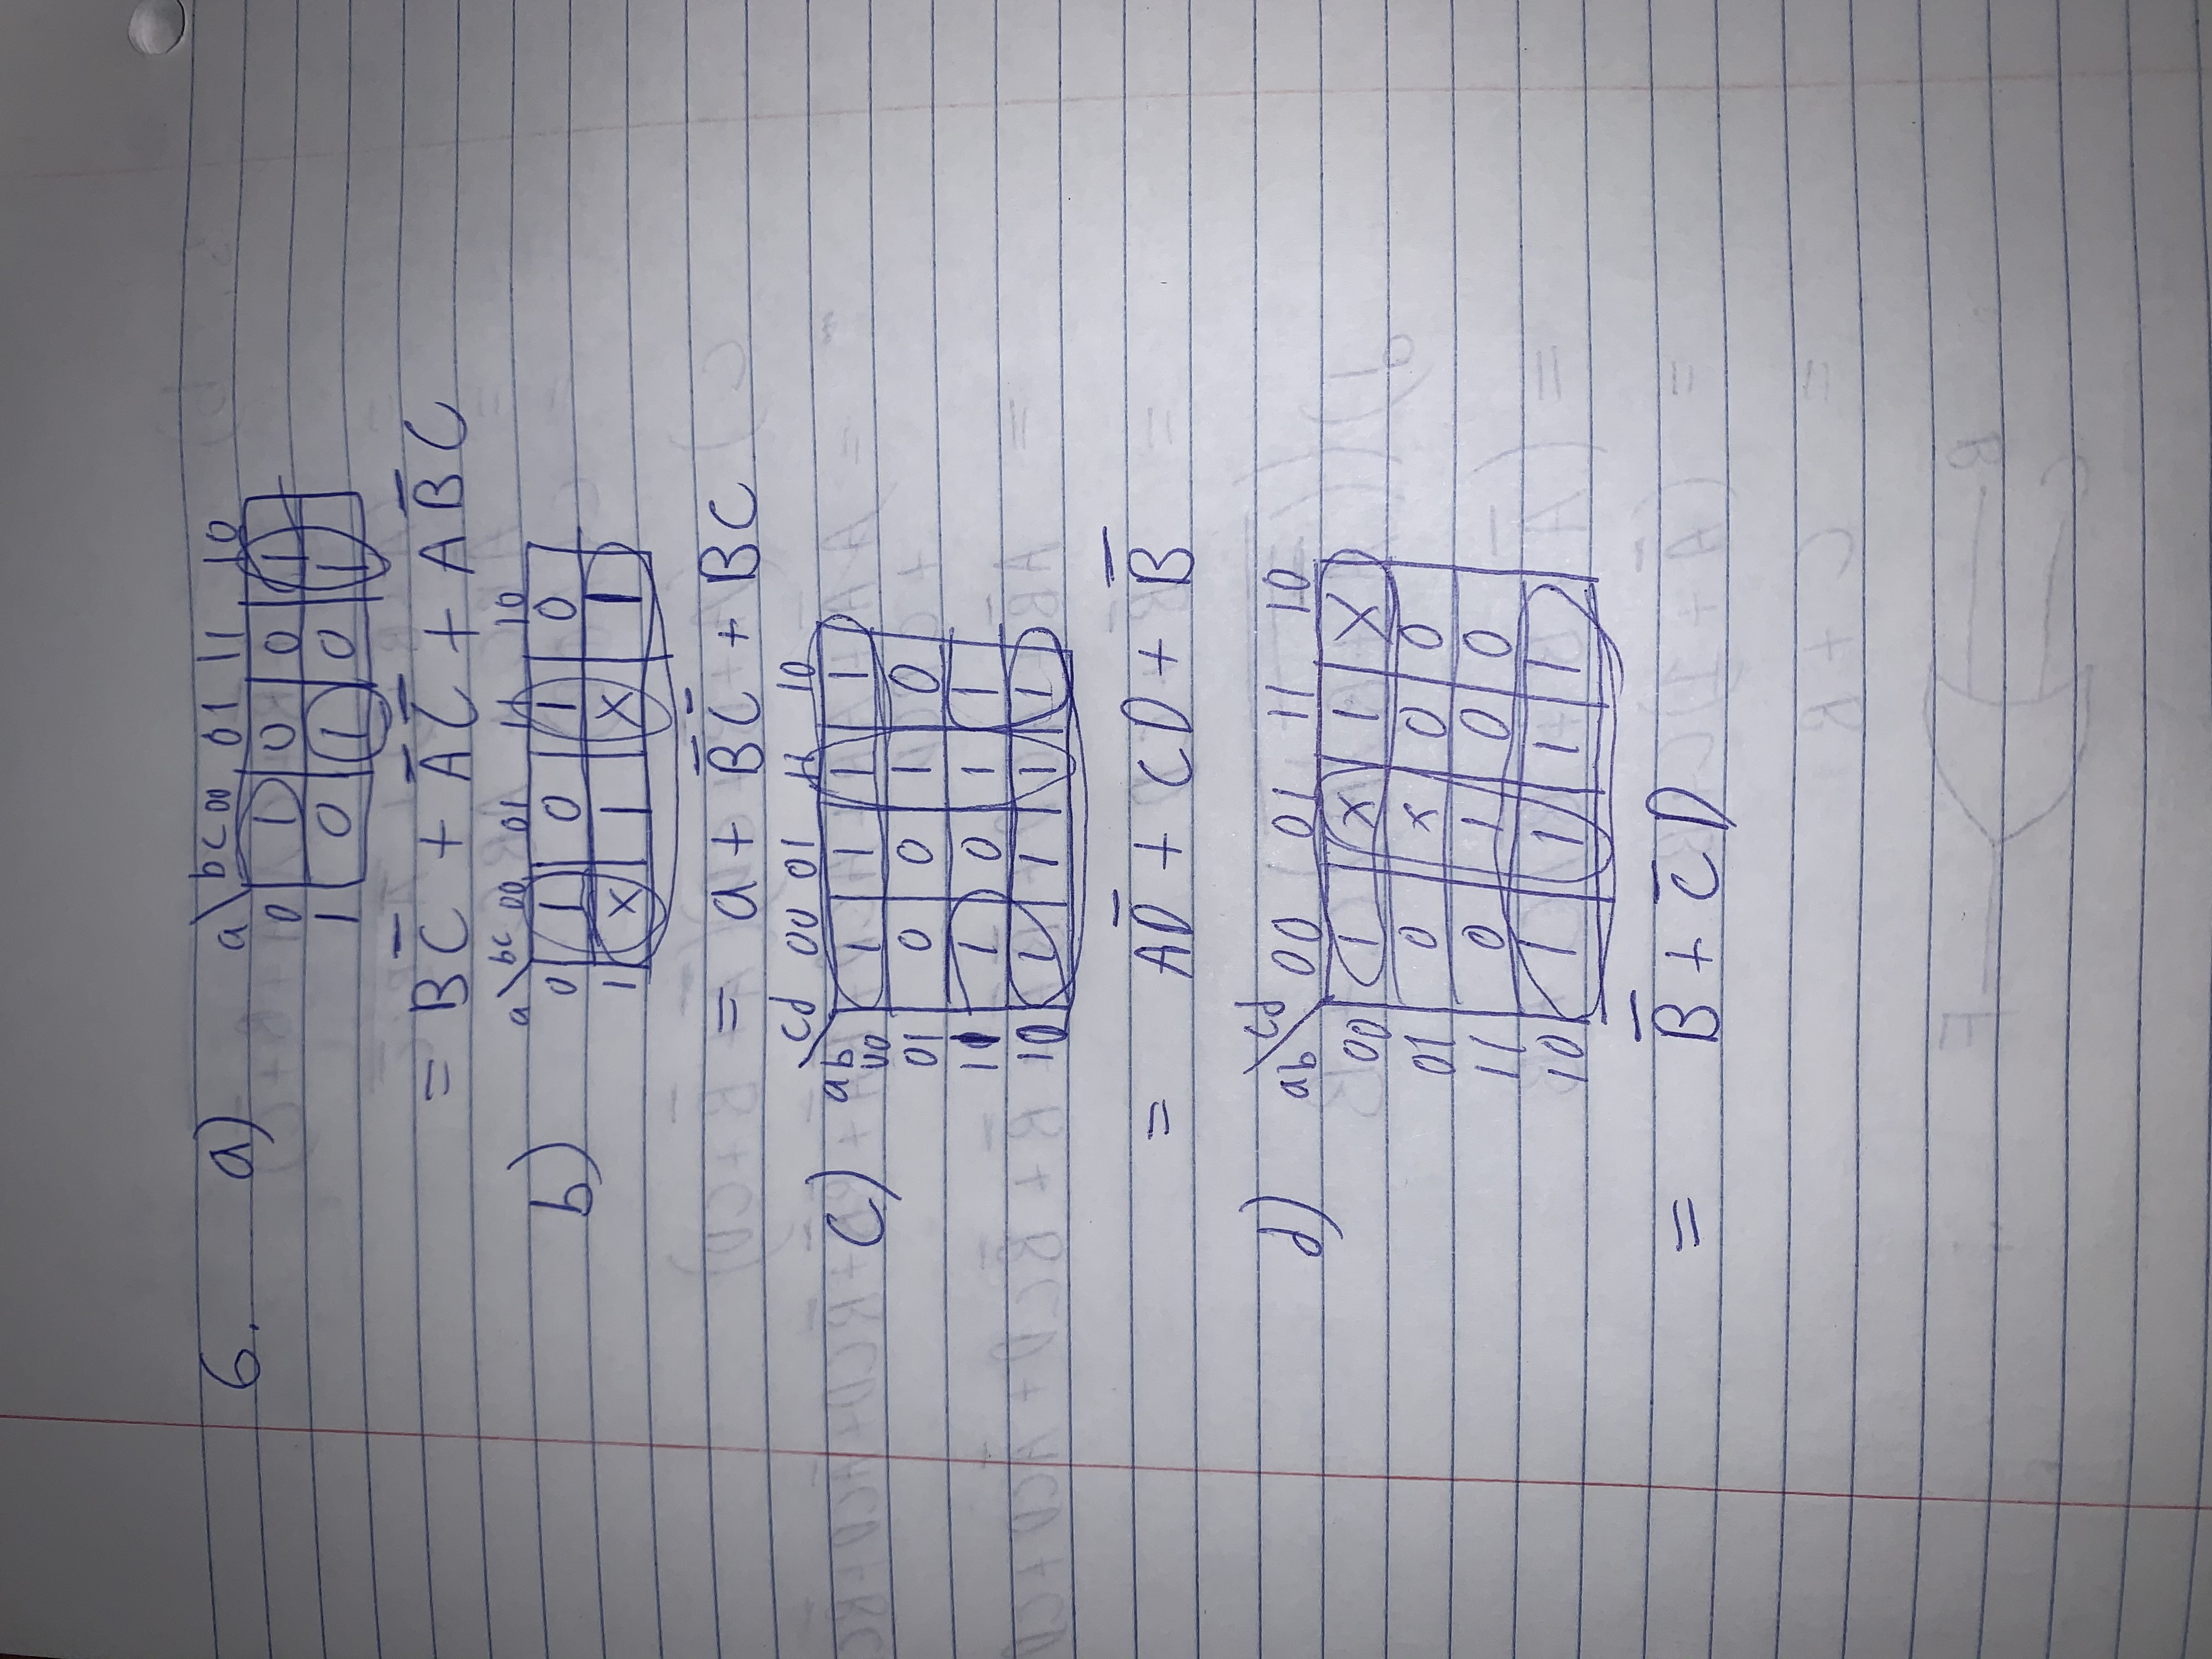 6. a) a\bc 00 01 11 10
0 1 0 0 1
1 0 1 0 1
= BC̅ + A̅C̅ + AB̅C
b) a\bc 00 01 11 10
0 1 0 1 0
1 x 1 x 1
= a + B̅C̅ + BC
c) ab\cd 00 01 11 10
00 1 1 1 1
01 0 0 1 0
11 1 0 1 1
10 1 1 1 1
= AD̅ + CD + B̅
d) ab\cd 00 01 11 10
00 1 x 1 X
01 0 x 0 0
11 0 1 0 0
10 1 1 1 1
= B̅ + C̅D